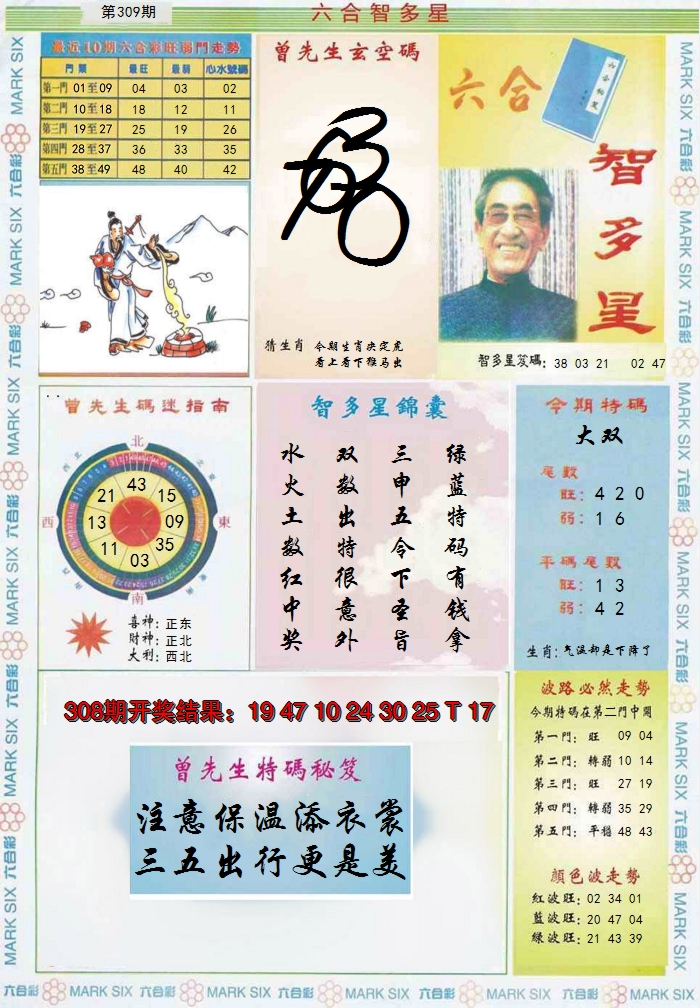 第309期
六合智多星
最近10期六合彩旺弱門走勢
門票 最旺 最弱 心水號碼
第一門 01至09 04 03 02
第二門 10至18 18 12 11
第三門 19至27 25 19 26
第四門 28至37 36 33 35
第五門 38至49 48 40 42
曾先生玄空碼
猜生肖 今期生肖决定虎
看上看下猴马出
六合
六合秘笈
智多星
智多星笈碼: 38 03 21 02 47
曾先生碼迷指南
北
西
東
南
43
15
09
35
03
11
13
21
喜神: 正东
財神: 正北
大利: 西北
智多星錦囊
绿蓝特码有钱拿
三申五令下圣旨
双数出特很意外
水火土数红中奖
今期特碼
大双
尾數
旺: 4 2 0
弱: 1 6
平碼尾數
旺: 1 3
弱: 4 2
生肖: 气温却是下降了
308期开奖结果: 19 47 10 24 30 25 T 17
曾先生特碼秘笈
注意保温添衣裳
三五出行更是美
波路必然走勢
今期特碼在第二門中開
第一門: 旺 09 04
第二門: 轉弱 10 14
第三門: 旺 27 19
第四門: 轉弱 35 29
第五門: 平穩 48 43
顏色波走勢
紅波旺: 02 34 01
藍波旺: 20 47 04
綠波旺: 21 43 39
MARK SIX 六合彩